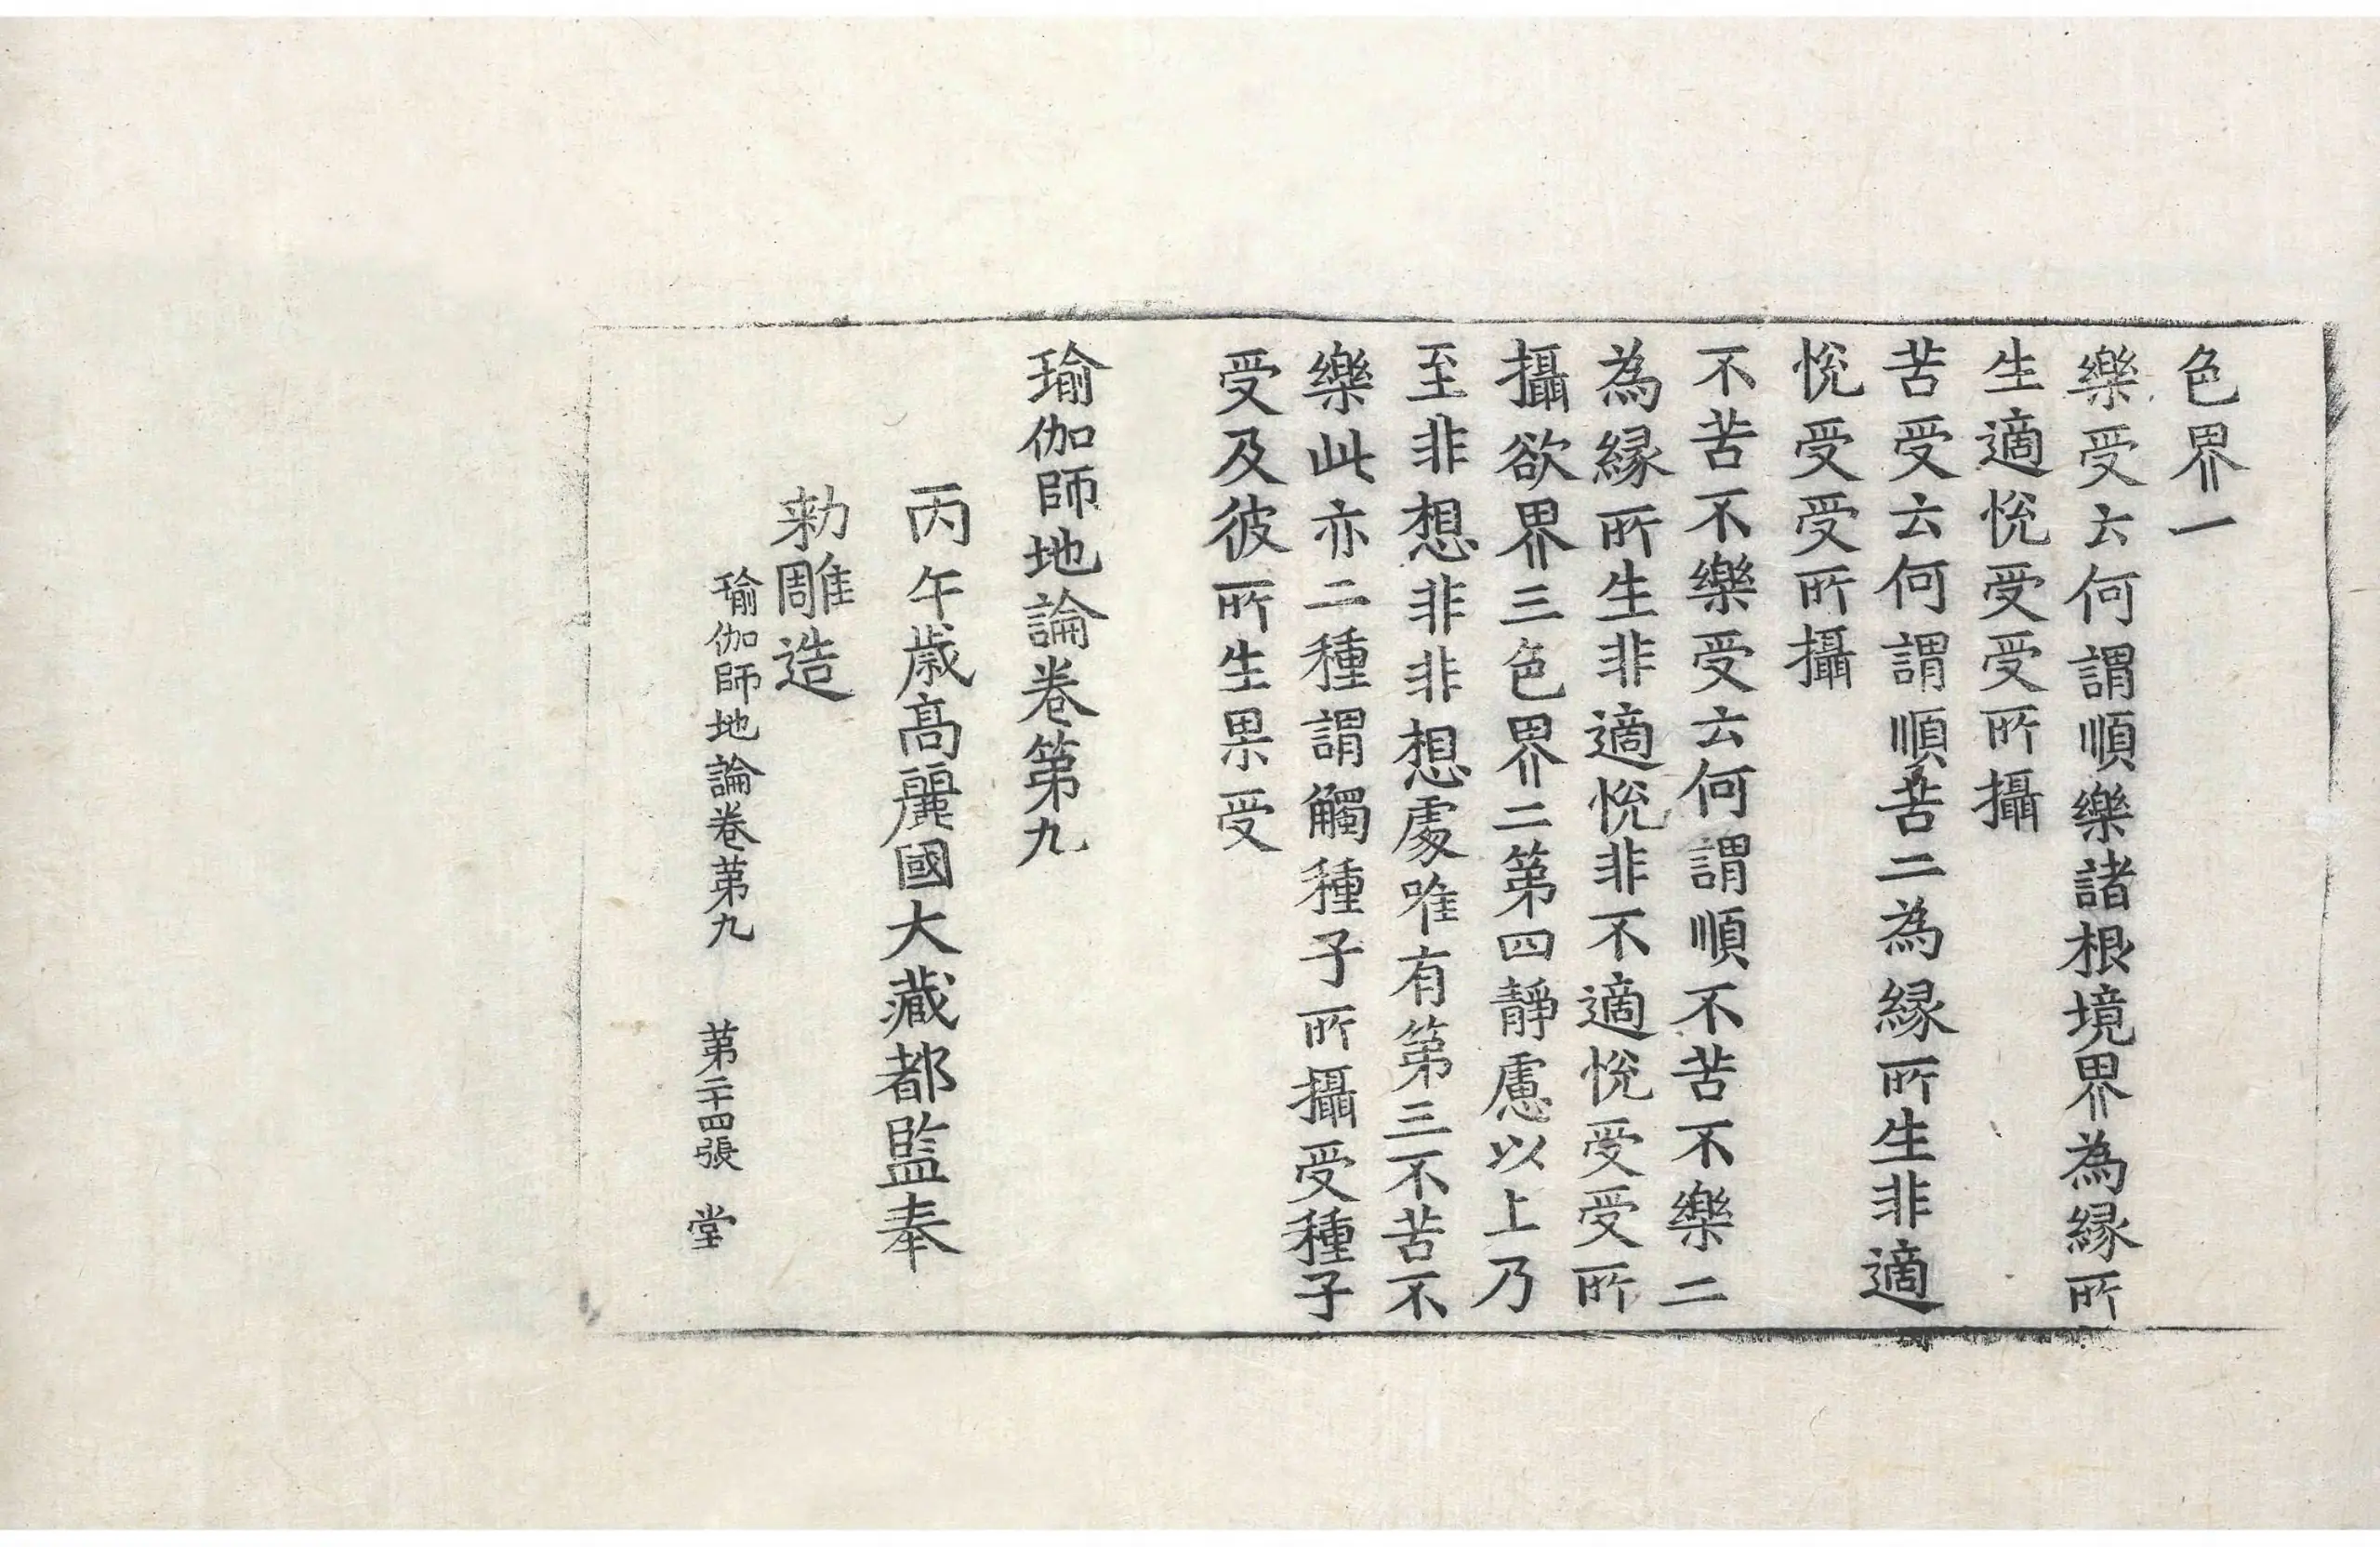 色界一
樂受云何謂順樂諸根境界為縁所
生適恱受受所攝
苦受云何謂順苦二為縁所生非適
恱受受所攝
不苦不樂受云何謂順不苦不樂二
為縁所生非適恱非不適恱受受所
攝欲界三色界二第四靜慮以上乃
至非想非非想處唯有第三不苦不
樂此亦二種謂觸種子所攝受種子
受及彼所生果受
瑜伽師地論卷第九
丙午歳高麗國大藏都監奉
勑雕造
瑜伽師地論卷第九 第二十四張 堂